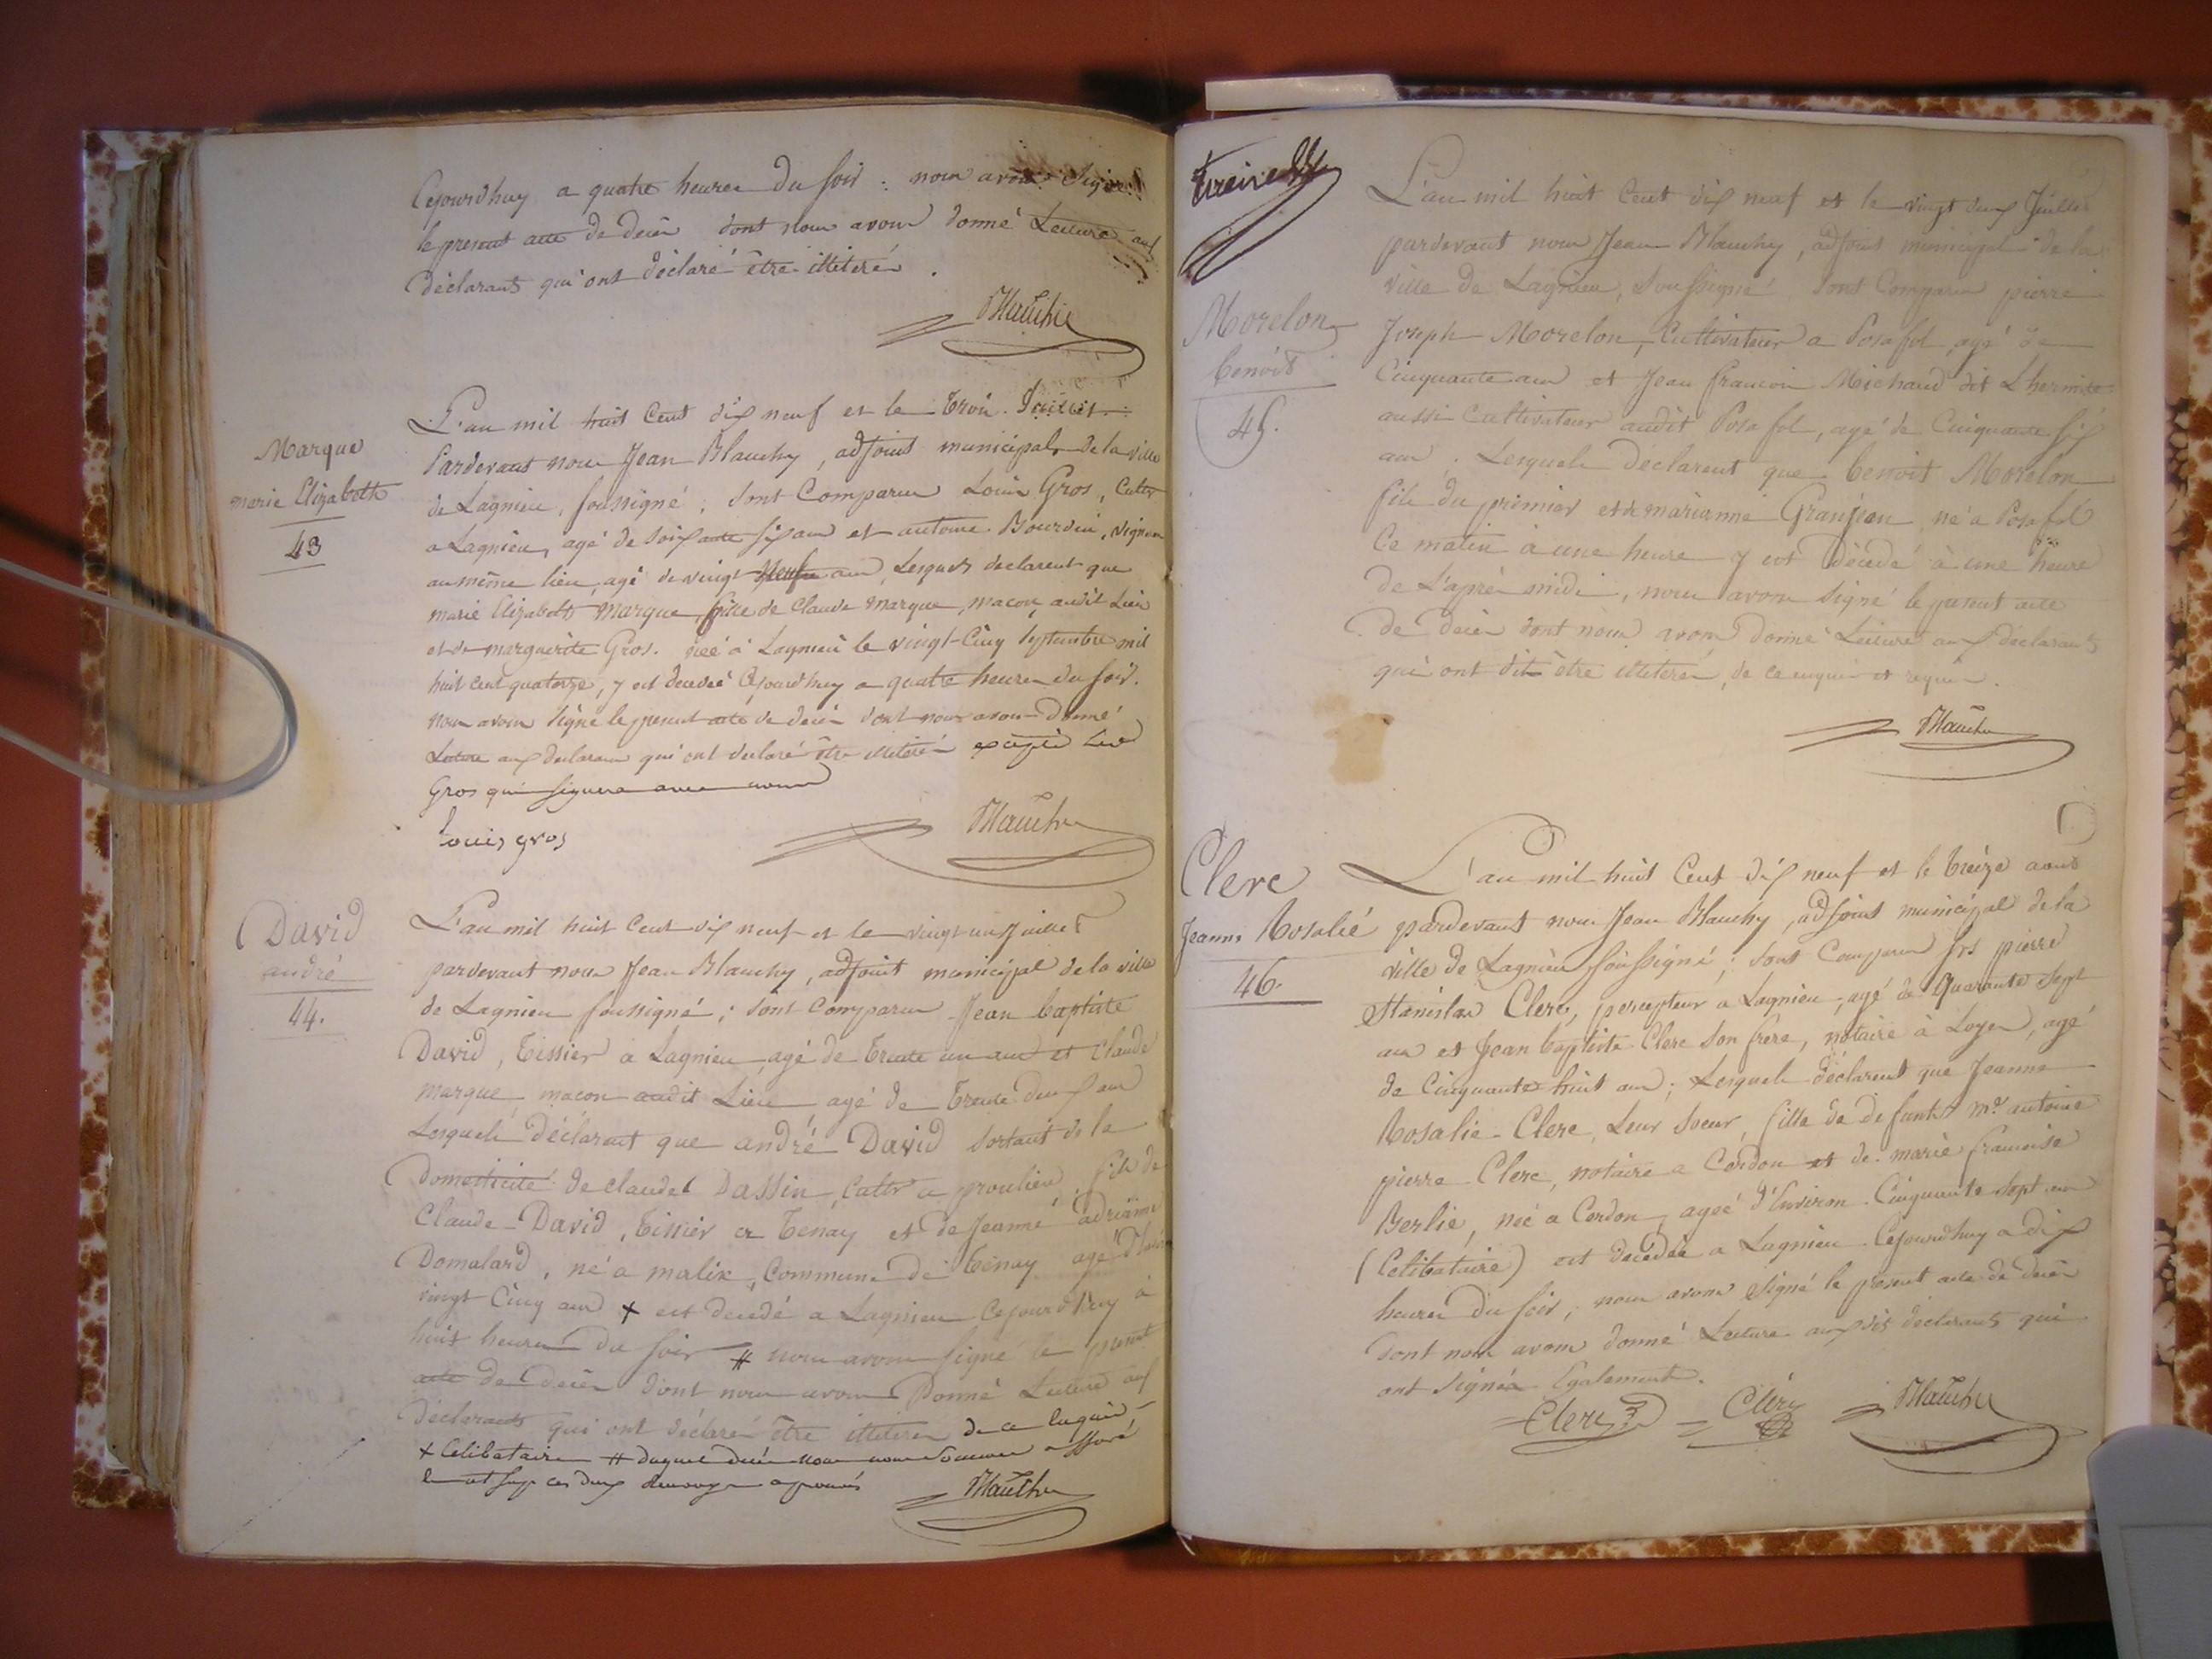 Cejourdhuy a quatre heures du soir : nous avons signé
le present acte de décès dont nous avons donné Lecture aux
déclarants qui ont déclaré être illiterés .
Blauchy
Marque
marie Elizabeth
43
L'an mil huit Cent dix neuf et le trois Juillet
Pardevant nous Jean Blauchy , adjoint municipal de la ville
de Lagnieu, soussigné ; sont Comparus Louis Gros, Cultr
a Lagnieu, agé de soixante six ans et antoine Bourdin, vigneron
au même lieu, agé de vingt neuf ans, Lesquels declarent que
marie Elizabeth Marque, fille de Claude Marque, macon, audit Lieu
et de marguerite Gros. née à Lagnieu le vingt-Cinq Septembre mil
huit Cent quatorze, y est decedée Cejourdhuy a quatre heures du soir.
nous avons signé le present acte de décès dont nous avons donné
Lecture aux declarans qui ont declaré être illiterés excepté Led
Gros qui signera avec nous
Louis gros
Blauchy
David
andré
44.
L'an mil huit Cent dix neuf et le vingt un Juillet
pardevant nous Jean Blauchy, adjoint municipal de la ville
de Lagnieu soussigné ; sont Comparus Jean baptiste
David, tissier a Lagnieu, agé de trente un ans et Claude
marque, macon audit Lieu, agé de trente deux ans
Lesquels déclarent que andré David sortant de la
Domesticité de claude Dassin, Cultr a proulieu, fils de
Claude David, tissier a tenay et de Jeanne adrianne
Domalard, né a malix, Commune de tenay agé d'Environ
vingt Cinq ans + est decedé a Lagnieu Cejourdhuy à
huit heures du soir # nous avons signé le present
acte de décès dont nous avons Donné Lecture aux
declarants qui ont déclaré être illiterés de ce Enquis
+ Celibataire # duquel décès nous nous sommes assuré
ces deux renvoys aprouvés
Blauchy
Morelon
benoit
45.
L'an mil huit Cent dix neuf et le vingt deux Juillet
pardevant nous Jean Blauchy, adjoint municipal de la
ville de Lagnieu, soussigné sont Comparus pierre
Joseph Morelon, Cultivateur a Posafol, agé de
Cinquante ans et Jean francois Michaud dit Lhermite
aussi Cultivateur audit Posafol, agé de Cinquante six
ans ; Lesquels declarent que benoit Morelon
fils du premier et de marianne Granjean né a Posafol
Ce matin à une heure y est Décedé à une heure
de L'après midi, nous avons signé le present acte
de Décès dont nous avons Donné Lecture aux declarants
qui ont dit être illiterés, de ce enquis et requis.
Blauchy
Clerc
Jeanne Rosalie
46.
L'an mil huit Cent dix neuf et le treize aout
pardevant nous Jean Blauchy, adjoint municipal de la
ville de Lagnieu soussigné ; sont Comparus Srs pierre
Stanislas Clerc, percepteur a Lagnieu, agé de Quarante sept
ans et Jean baptiste Clerc son frère, notaire à Loyes, agé
de Cinquante huit ans ; Lesquels déclarent que Jeanne
Rosalie Clerc, Leur soeur, fille de defunt Me antoine
pierre Clerc, notaire a Cordon et de marie francoise
Berlie, née a Cordon, agée d'Environ Cinquante sept ans
(Celibataire) est decedée a Lagnieu Cejourdhuy a dix
heures du soir, nous avons signé le present acte de décès
dont nous avons donné Lecture auxdits declarants qui
ont signés Egalement.
Clerc
Clerc
Blauchy